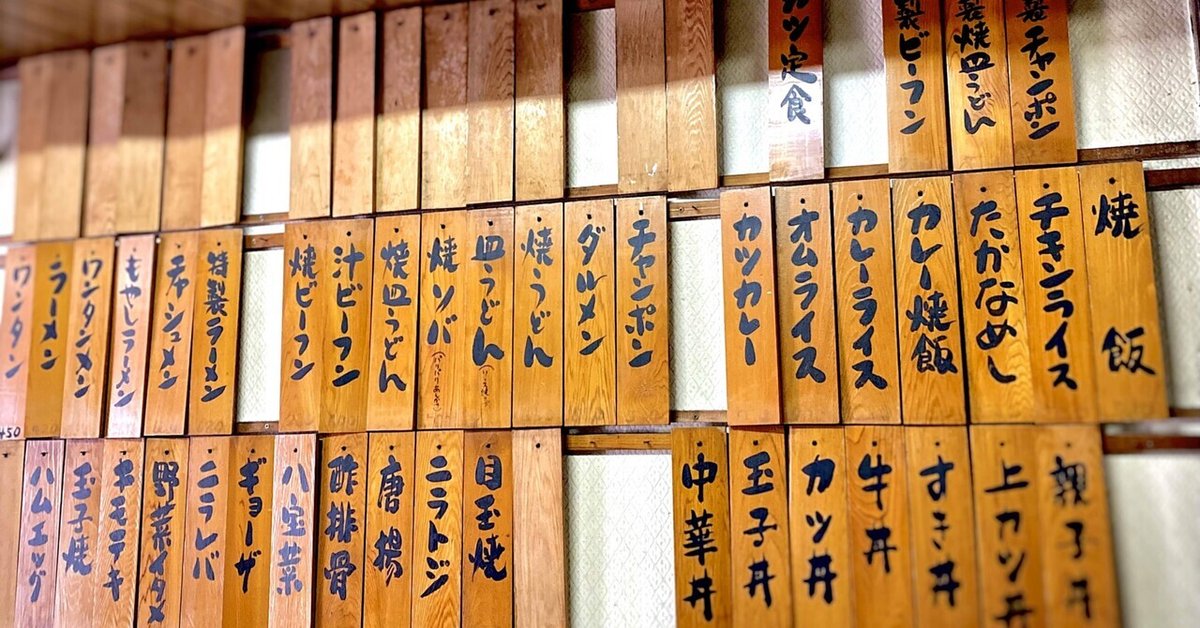 製チャンポン
製焼皿うどん
製ビーフン
カツ定食
焼飯
チキンライス
たかなめし
カレー焼飯
カレーライス
オムライス
カツカレー
チャンポン
ダルメン
焼うどん
皿うどん
焼ソバ
焼皿うどん
汁ビーフン
焼ビーフン
特製ラーメン
チャシュメン
もやしラーメン
ワンタンメン
ラーメン
ワンタン
450
親子丼
上カツ丼
すき丼
牛丼
カツ丼
玉子丼
中華丼
目玉焼
ニラトジ
唐揚
酢排骨
八宝菜
ギョーザ
ニラレバ
野菜イタメ
キモテキ
玉子焼
ハムエッグ